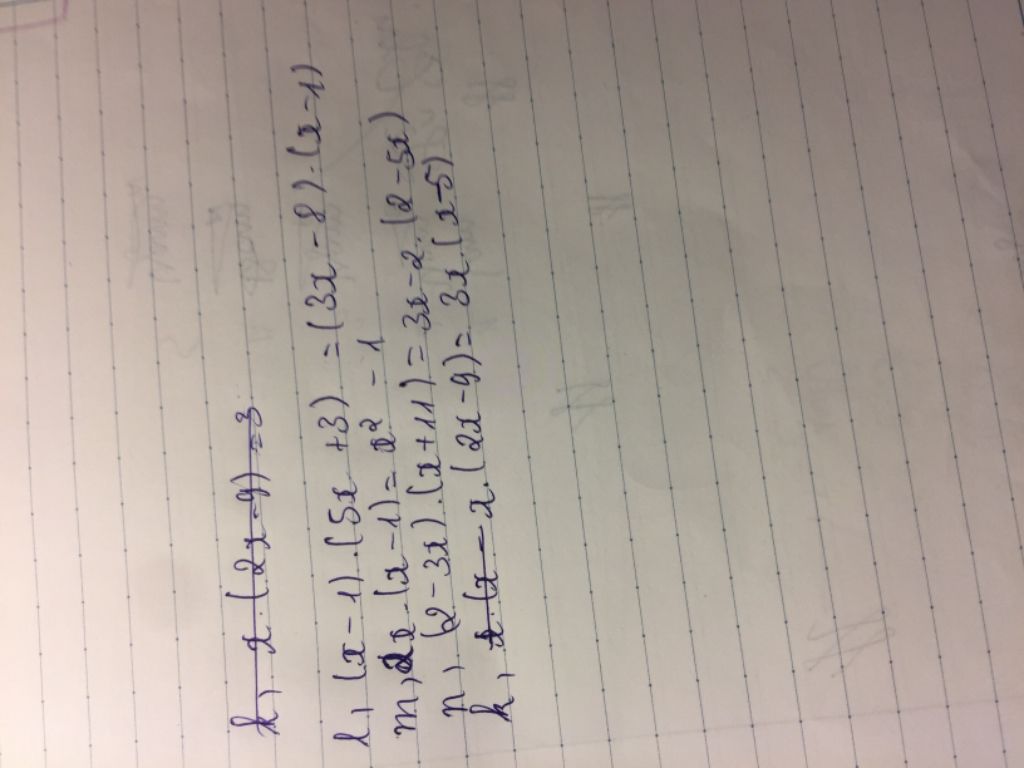 k, x.(2x-9)=3
l, (x-1).(5x+3) =(3x-8).(x-1)
m, 2x.(x-1)=x²-1
n, (2-3x).(x+11)=3x-2.(2-5x)
k, x.(x- x.(2x-9)=3x(x-5)